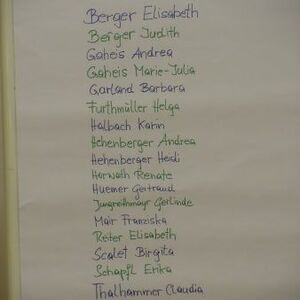 Berger Elisabeth
Berger Judith
Gaheis Andrea
Gaheis Marie-Julia
Garland Barbara
Furthmüller Helga
Halbach Karin
Hehenberger Andrea
Hehenberger Heidi
Horwath Renate
Huemer Gertraud
Jungreithmayr Gerlinde
Mair Franziska
Reiter Elisabeth
Scalet Birgita
Schapfl Erika
Thalhammer Claudia